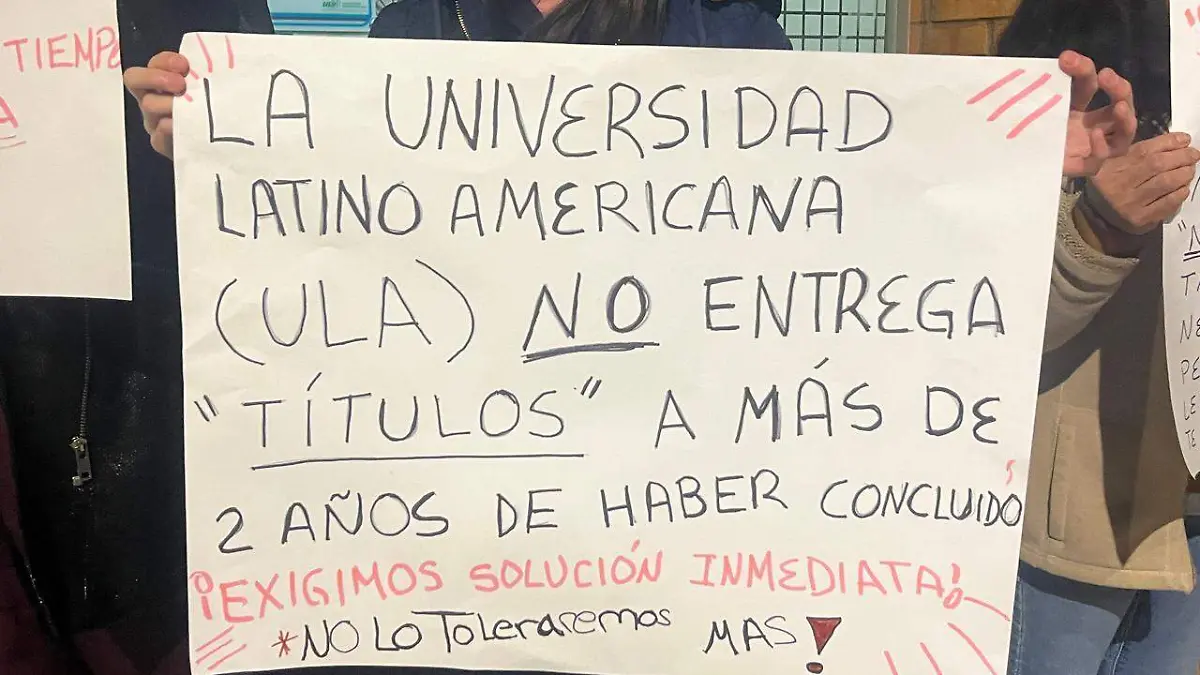 TIEMPO
A
LA UNIVERSIDAD
LATINO AMERICANA
(ULA) NO ENTREGA
"TÍTULOS" A MÁS DE
2 AÑOS DE HABER CONCLUIDÓ
¡EXIGIMOS SOLUCIÓN INMEDIATA!
*NO LO ToleraRemos MAS!
"N
T
NE
PE
LE
TE